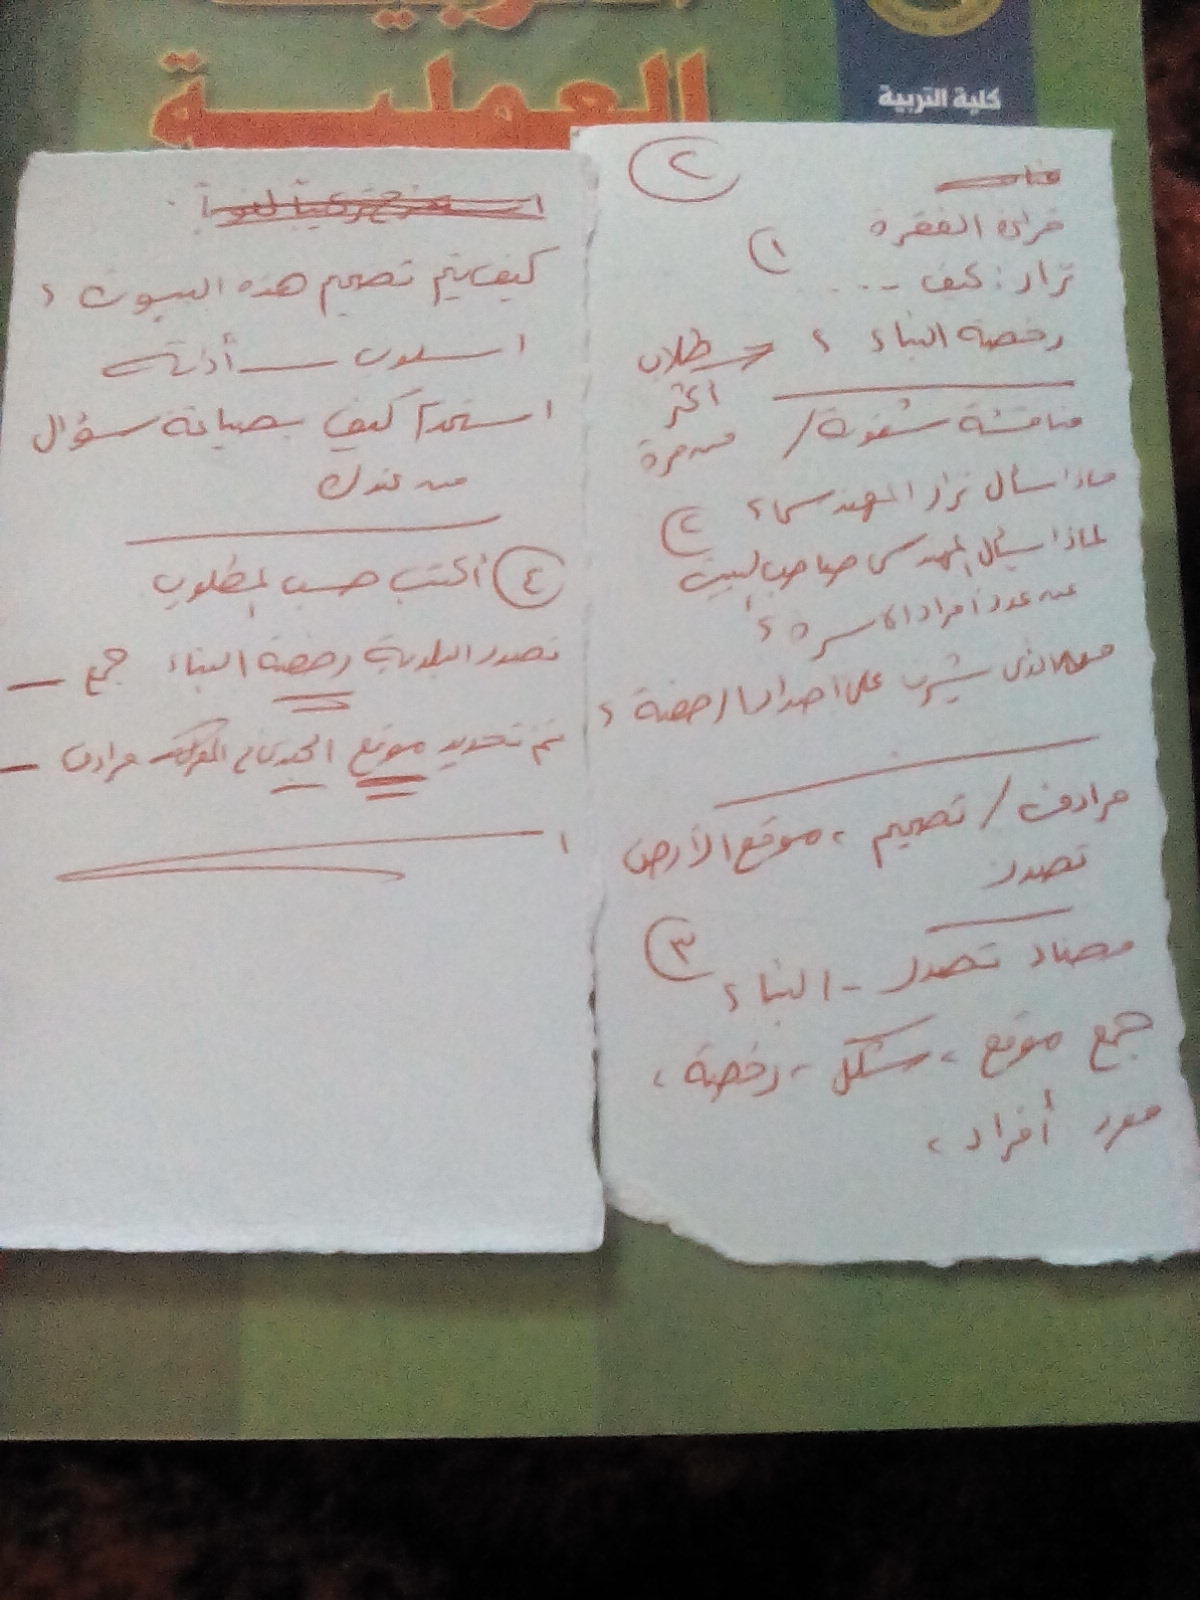 العملية
كلية التربية
٢
قراءة الفقرة
١
نزار: كيف ...
رخصة البناء ؟
طلاب
أكثر
من مرة
مناقشة شفوية /
ماذا سأل نزار المهندس ؟
٢
لماذا سأل المهندس صاحب البيت
عن عدد أفراد الأسرة ؟
من الذي يشرف على اصدار الرخصة ؟
مرادف / تصميم ، موقع الأرض
تصدر
٣
مضاد تصدر - البناء
جمع موقع ، شكل ، رخصة ،
مفرد أفراد ،
كيف يتم تصميم هذه البيوت ؟
اسلوب أداته
استخدم كيف بصياغة سؤال
من عندك
٤ أكتب حسب المطلوب
تصدر البلدية رخصة البناء جمع
تم تحديد موقع مرادف